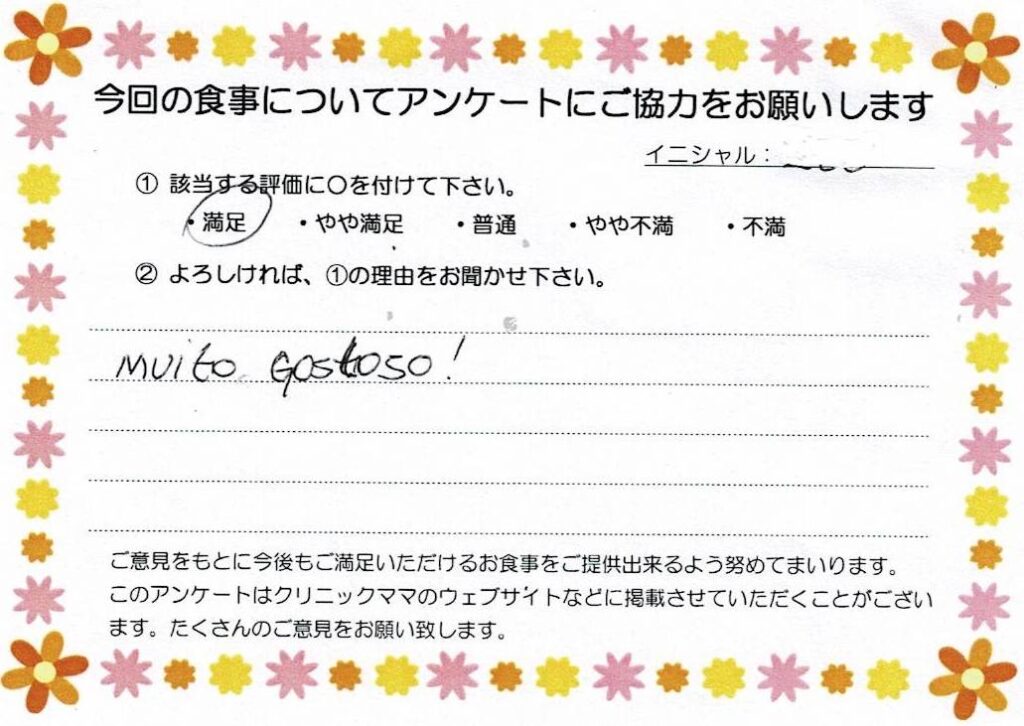 今回の食事についてアンケートにご協力をお願いします
イニシャル：
① 該当する評価に〇を付けて下さい。
・満足 ・やや満足 ・普通 ・やや不満 ・不満
② よろしければ、①の理由をお聞かせ下さい。
MUITO GOSTOSO!
ご意見をもとに今後もご満足いただけるお食事をご提供出来るよう努めてまいります。
このアンケートはクリニックママのウェブサイトなどに掲載させていただくことがござい
ます。たくさんのご意見をお願い致します。